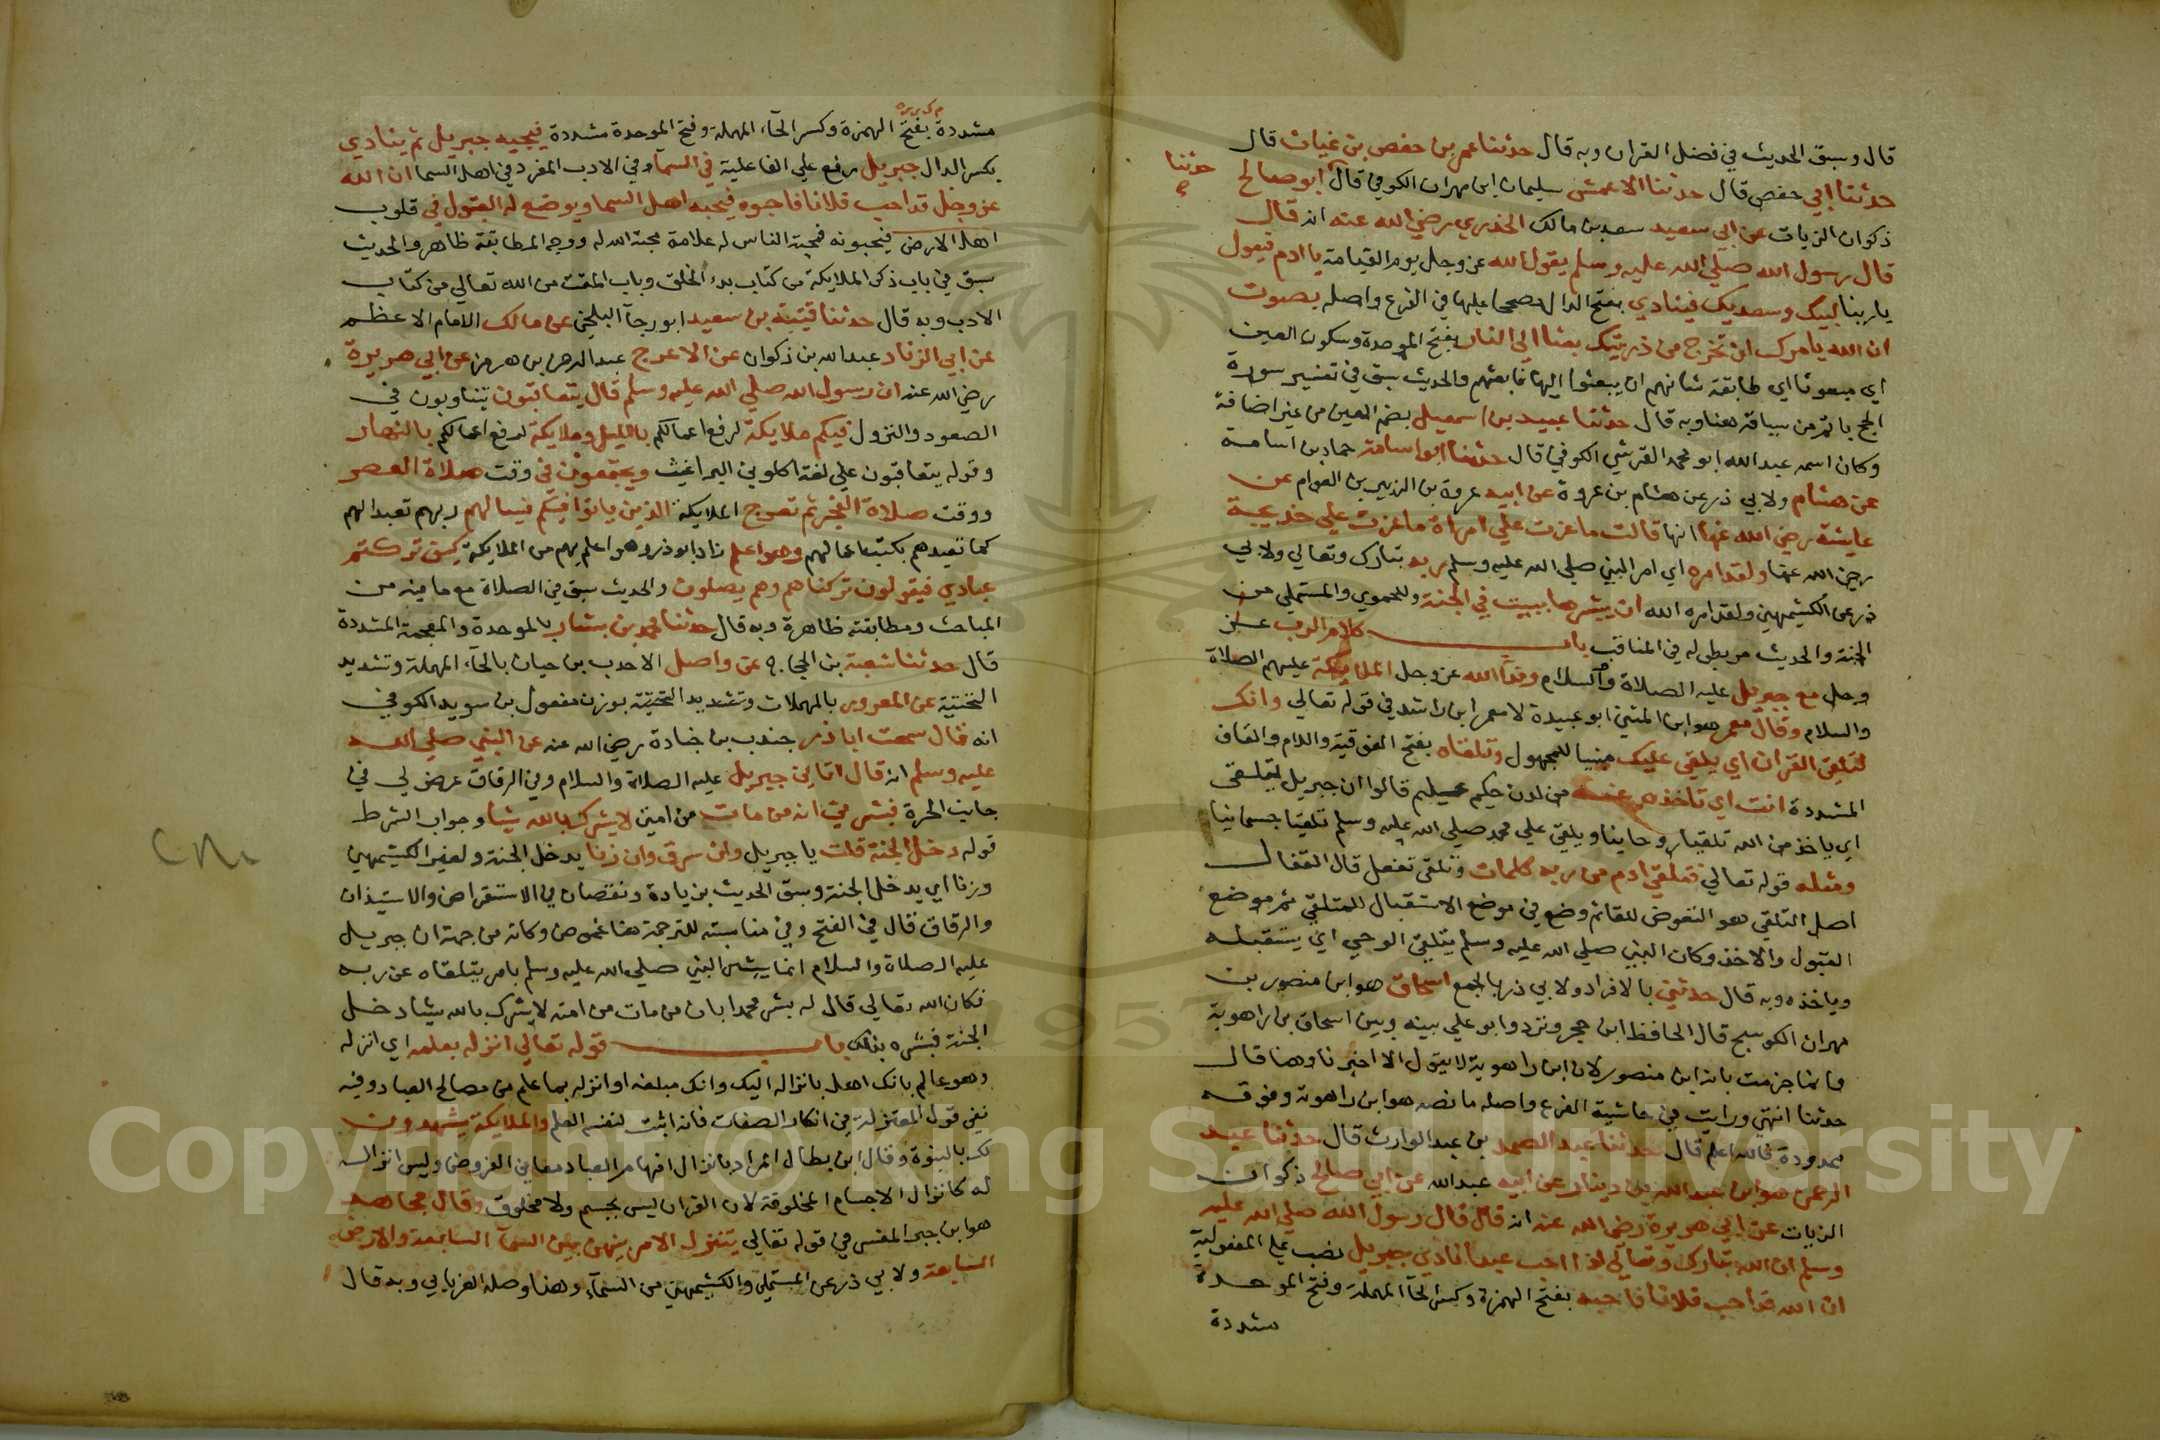 قال وسبق الحديث في فضل القران وبه قال حدثنا عمر بن حفص بن غياث قال
حدثنا ابي حفص قال حدثنا الاعمش سليمان ابن مهران الكوفي قال ابو صالح
حدثنا
ذكوان الزيات عن ابي سعيد سعد بن مالك الخدري رضي الله عنه انه قال
قال رسول الله صلي الله عليه وسلم يقول الله عز وجل يوم القيامة يا ادم فيقول
يا ربنا لبيك وسعديك فينادي بفتح الدال مصححا عليها في الفرع واصله بصوت
ان الله يامرك ان تخرج من ذريتك بعثا الي النار بفتح الموحدة وسكون العين
اي مبعوثا اي طابقة شانهم ان يبعثوا اليها فابعثهم والحديث سبق في تفسير سورة
الحج باتم من سياقه هنا وبه قال حدثنا عبيد بن اسمعيل بضم العين من غير اضافة
وكان اسمه عبد الله ابو محمد القرشي الكوفي قال حدثنا ابو اسامة حماد بن اسامة
عن هشام ولابي ذر عن هشام بن عروة عن ابيه عروة بن الزبير بن العوام عن
عايشة رضي الله عنها انها قالت ما غرت علي امراة ما غرت علي خديجة
رضي الله عنها ولقد امره اي امر النبي صلي الله عليه وسلم ربه تبارك وتعالي ولابي
ذر عن الكشميهني ولقد امره الله ان يبشرها ببيت في الجنة وللحموي والمستملي من
الجنة والحديث مر بطوله في المناقب باب كلام الرب عز
وجل مع جبريل عليه الصلاة والسلام ونداء الله عز وجل الملايكة عليهم الصلاة
والسلام وقال معمر هو ابن المثني ابو عبيدة لا معمر ابن راشد في قوله تعالي وانك
لتلقي القران اي يلقي عليك مبنيا للمجهول وتلقاه بفتح الفوقية واللام والقاف
المشددة انت اي تاخذه عنهم من لدن حكيم عليم قالوا ان جبريل يتلقي
اي ياخذ من الله تلقيا روحانيا ويلقي علي محمد صلي الله عليه وسلم تلقيا جسمانيا
ومثله قوله تعالي فتلقي ادم من ربه كلمات وتلقي تفعل قال القفال
اصل التلقي هو التعرض للقاثم وضع في موضع الاستقبال للمتلقي ثم موضع
القبول والاخذ وكان النبي صلي الله عليه وسلم يتلقي الوحي اي يستقبله
وياخذه وبه قال حدثني بالافراد ولابي ذر بالجمع اسحاق هو ابن منصور بن
مهران الكوسج قال الحافظ ابن حجر وتردد ابو علي بينه وبين اسحاق بن راهوية
وانما جزمت بانه ابن منصور لان ابن راهوية لا يقول الا اخبرنا وهنا قال
حدثنا انتهي ورايت في حاشية الفرع واصله ما نصه هو ابن راهوية وفوقه
ممدودة فالله اعلم قال حدثنا عبد الصمد بن عبد الوارث قال حدثنا عبد
الرحمن هو ابن عبد الله بن دينار عن ابيه عبد الله عن ابي صالح ذكوان
الزيات عن ابي هريرة رضي الله عنه انه قال قال رسول الله صلي الله عليه
وسلم ان الله تبارك وتعالي اذا احب عبدا نادي جبريل نصب علي المفعولية
ان الله قد احب فلانا فاحبه بفتح الهمزة وكسر الحا المهملة وفتح الموحدة
مشددة
مشددة بفتح الهمزة وكسر الحاء المهملة وفتح الموحدة مشددة فيحبه جبريل ثم ينادي
بكسر الدال جبريل رفع علي الفاعلية في السما وفي الادب المفرد في اهل السما ان الله
عز وجل قد احب فلانا فاحبوه فيحبه اهل السما ويوضع له القبول في قلوب
اهل الارض فيحبونه فمحبة الناس له علامة محبة الله له ووجه المطابقة ظاهر والحديث
سبق في باب ذكر الملايكة من كتاب بدء الخلق وباب المقت من الله تعالي من كتاب
الادب وبه قال حدثنا قتيبة بن سعيد ابو رجآ البلخي عن مالك الامام الاعظم
عن ابي الزناد عبد الله بن ذكوان عن الاعرج عبد الرحمن بن هرمز عن ابي هريرة
رضي الله عنه ان رسول الله صلي الله عليه وسلم قال يتعاقبون يتناوبون في
الصعود والنزول فيكم ملايكة لرفع اعمالكم بالليل وملايكة لرفع اعمالكم بالنهار
وقوله يتعاقبون علي لغة اكلوني البراغيث ويجتمعون في وقت صلاة العصر
ووقت صلاة الفجر ثم تعرج الملايكة الذين باتوا فيكم فيسالهم ربهم تعبدا لهم
كما تعبدهم بكتب اعمالهم وهو اعلم زاد ابو ذر وهو اعلم بهم من الملايكة كيف تركتم
عبادي فيقولون تركناهم وهم يصلون والحديث سبق في الصلاة مع ما فيه من
المباحث ومطابقته ظاهرة وبه قال حدثنا محمد بن بشار بالموحدة والمعجمة المشددة
قال حدثنا شعبة بن الحجاج عن واصل الاحدب بن حيان بالحاء المهملة وتشديد
التحتية عن المعرور بالمهملات وتشديد التحتية بوزن مفعول بن سويد الكوفي
انه قال سمعت ابا ذر جندب بن جنادة رضي الله عنه عن النبي صلي الله
عليه وسلم انه قال اتاني جبريل عليه الصلاة والسلام وفي الرقاق عرض لي في
جانب الحرة فبشرني انه من مات من امتي لا يشرك بالله شيا وجواب الشرط
قوله دخل الجنة قلت يا جبريل وان سرق وان زنا يدخل الجنة ولغير الكشميهني
وزنا اي يدخل الجنة وسبق الحديث بزيادة ونقصان في الاستقراض والاستيذان
والرقاق قال في الفتح وفي مناسبته للترجمة هنا غموض وكانه من جهة ان جبريل
عليه الصلاة والسلام انما يبشر النبي صلي الله عليه وسلم بامر يتلقاه عن ربه
فكان الله تعالي قال له بشر محمدا بان من مات من امته لا يشرك بالله شيا دخل
الجنة فبشره بذلك باب قوله تعالي انزله بعلمه اي انزله
وهو عالم بانك اهل بانزاله اليك وانك مبلغه او انزله بما علم من مصالح العباد وفيه
نفي قول المعتزلة في انكار الصفات فانه اثبت لنفسه العلم والملايكة يشهدون
لك بالنبوة وقال ابن بطال المراد بانزال افهام العباد معاني الفروض وليس انزاله
له كانزال الاجسام المخلوقة لان القران ليس بجسم ولا مخلوق وقال مجاهد
هو ابن جبر المفسر في قوله تعالي يتنزل الامر بينهن بين السمآ السابعة والارض
السابعة ولابي ذر عن المستملي والكشميهني من السمآء وهذا وصله الفريابي وبه قال
Copyright © King Saud University
1957